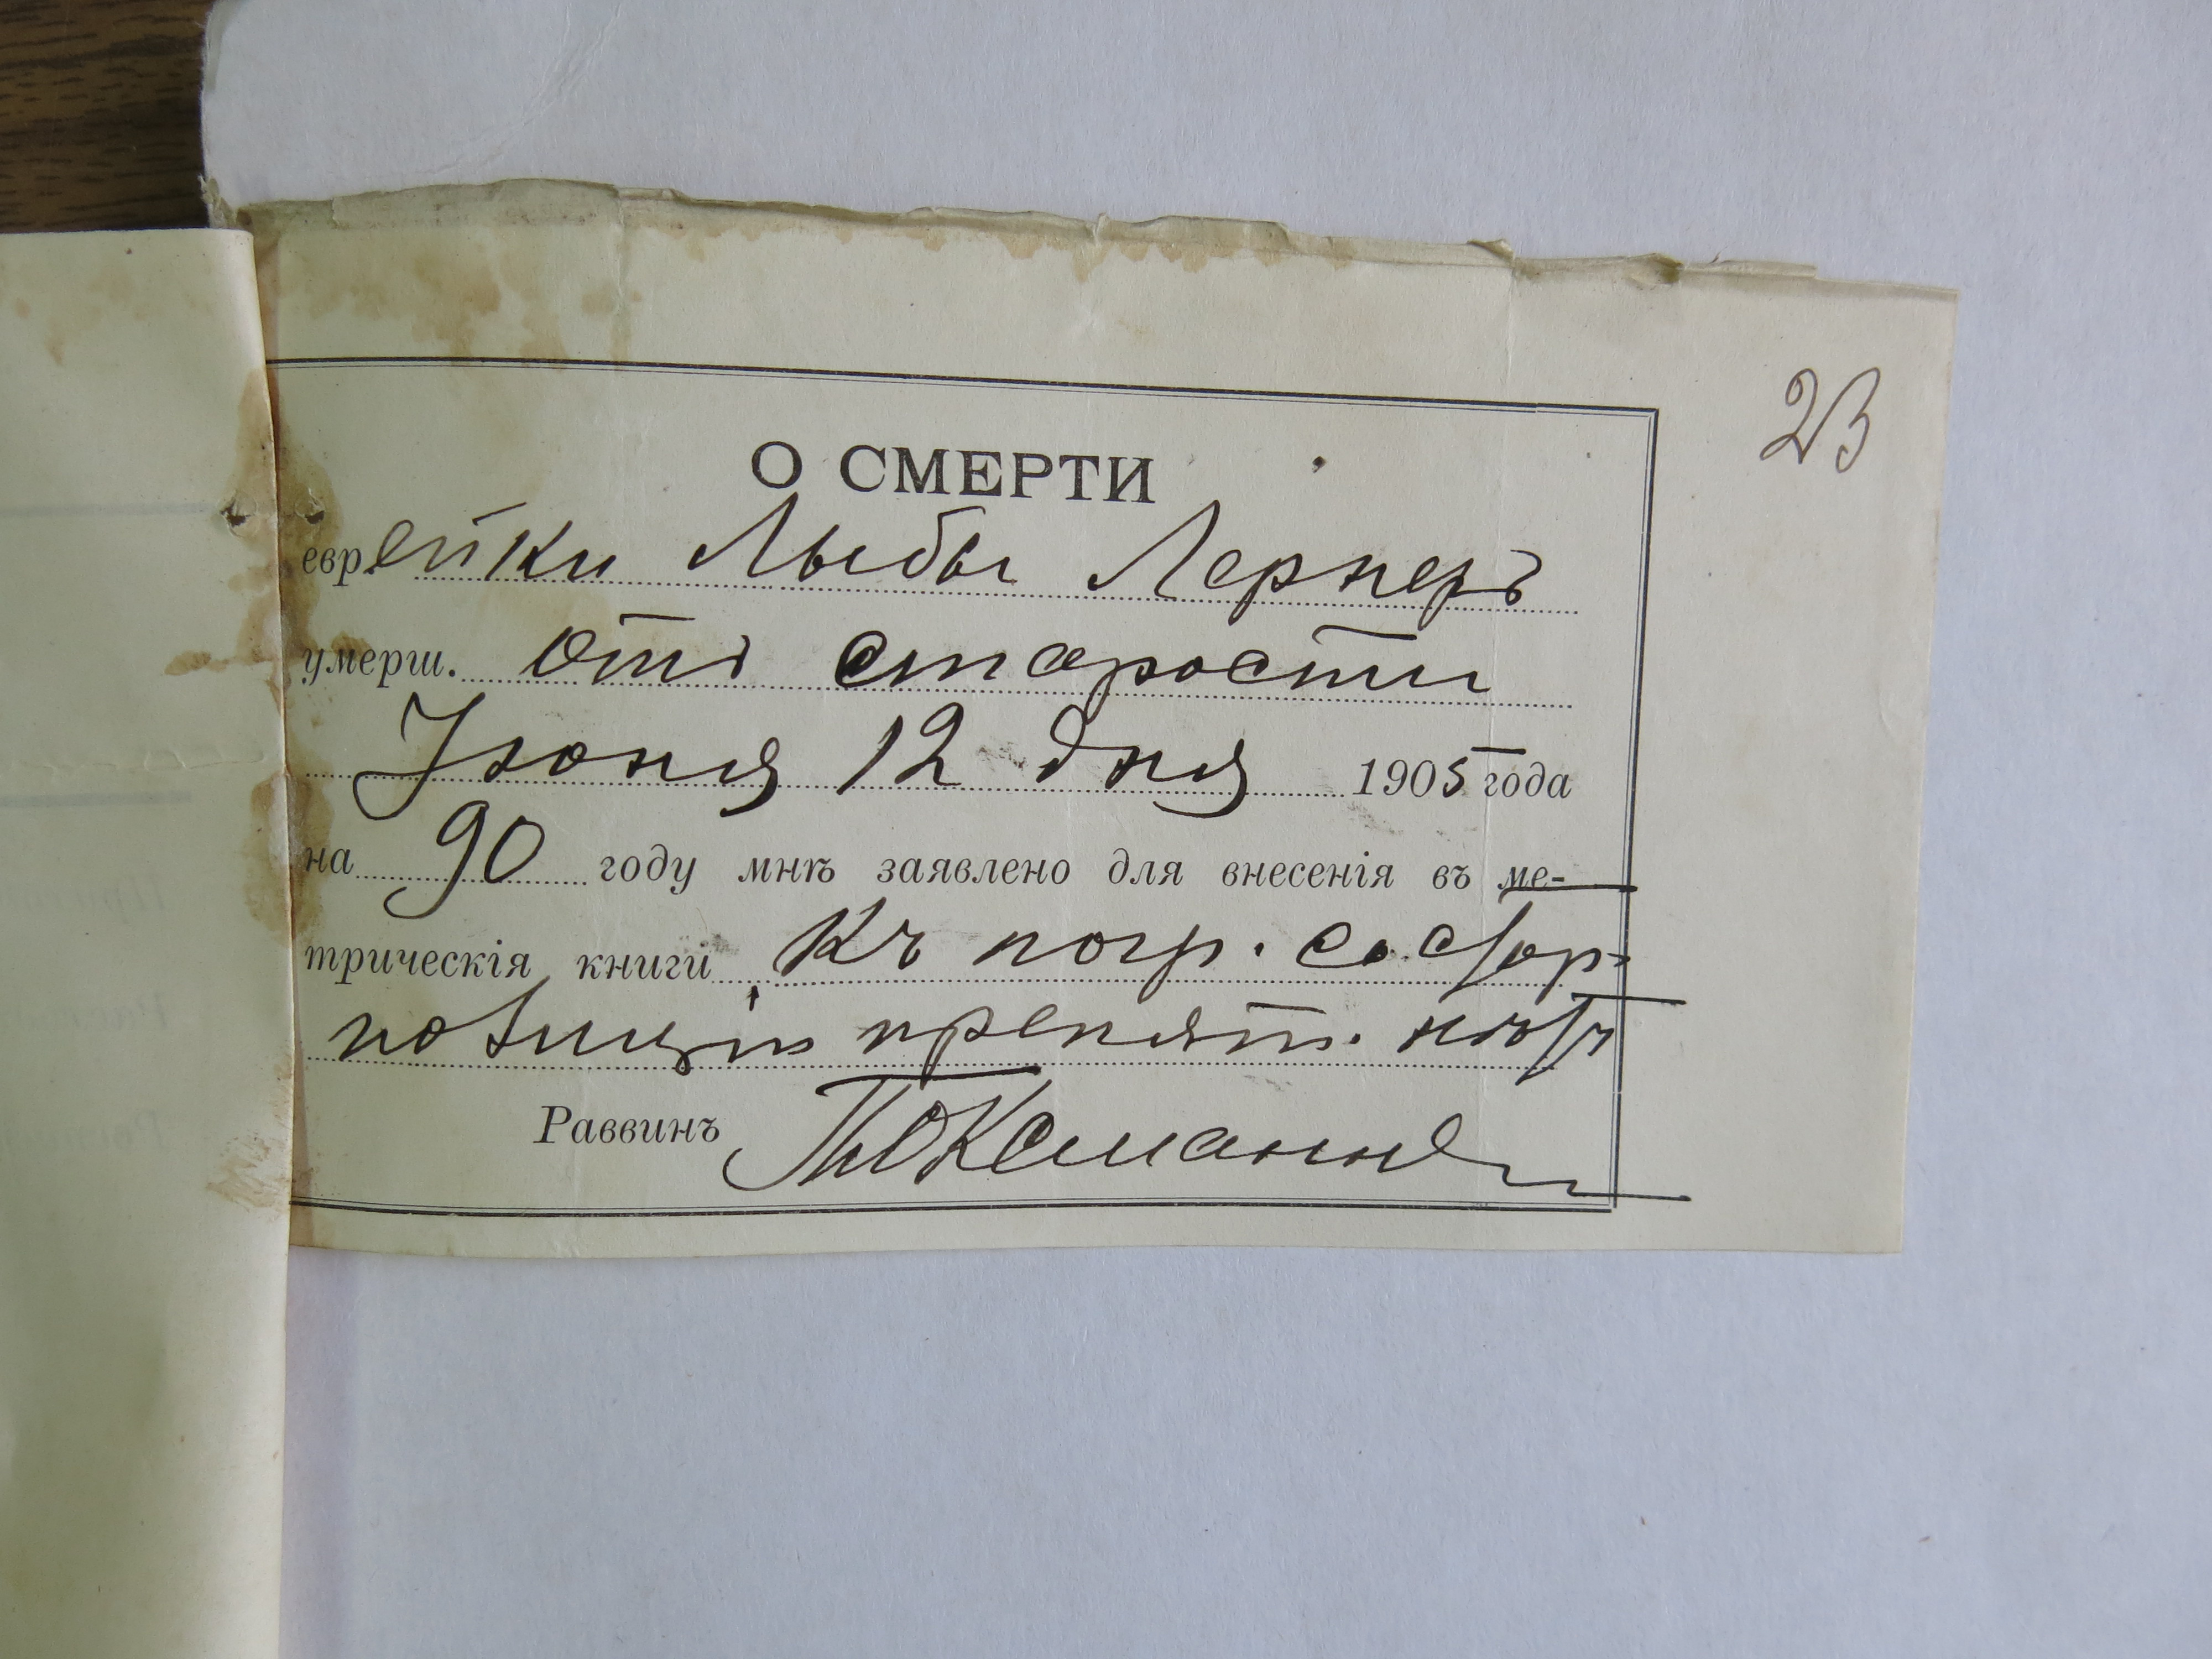 23
О СМЕРТИ
еврейки Лыбы Лернеръ
умерш. отъ старости
Іюня 12 дня 1905 года
на 90 году мнѣ заявлено для внесенія въ ме-
трическія книги Къ погр. со стор-
поли­ціи препят. нѣтъ
Раввинъ